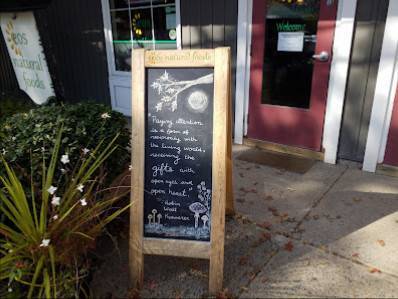 eos
natural
foods
Welcome
eos natural foods
"Paying attention
is a form of
reciprocity with
the living world,
receiving the
gifts with
open eyes and
open heart."
- Robin
Wall
Kimmerer